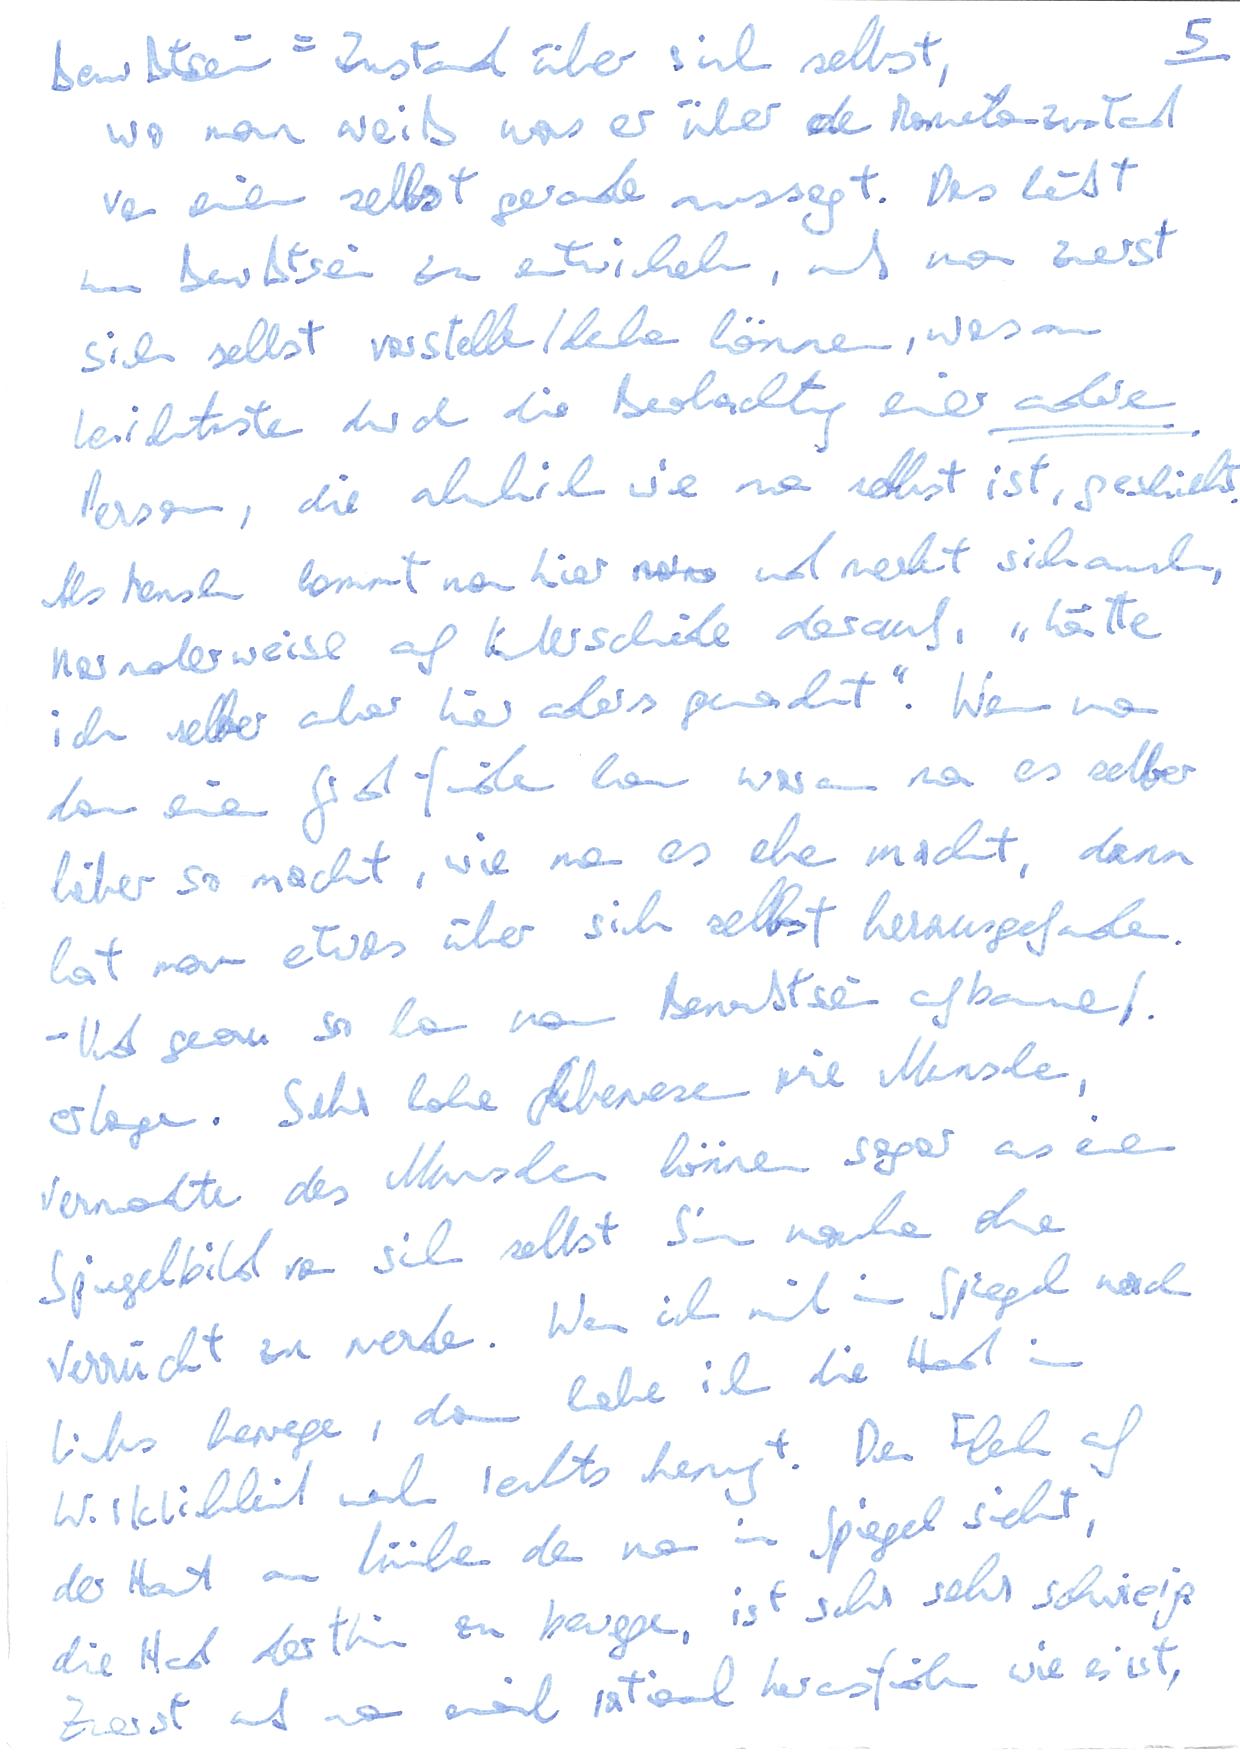 5
Bewußtsein = Zustand über sich selbst,
wo man weiß was er über de Momentanzustand
von einen selbst gerade aussagt. Das heißt
um Bewußtsein zu entwickeln, muß man zuerst
sich selbst vorstelle/ können, was am
leichtesten durch die Beobachtung einer andere
Person, die ähnlich wie man selbst ist, geschieht.
Als Mensch kommt man hier und merkt sich auch,
normalerweise auf Unterschiede darauf, "hätte
ich selber aber hier anders gemacht". Wenn man
dann einen Grund finden kann warum man es selber
lieber so macht, wie man es eben macht, dann
hat man etwas über sich selbst herausgefunden.
- Und genau so kann man Bewußtsein aufbauen/
erlangen. Sehr hohe Lebewesen wie Menschen,
Verwandte des Menschen können sogar aus einen
Spiegelbild von sich selbst Sinn machen ohne
verrückt zu werden. Wenn ich mich im Spiegel nach
links bewege, dann habe ich die Hand in
Wirklichkeit nach rechts bewegt. Den Fleck auf
der Haut an den man im Spiegel sieht,
die Hand dorthin zu bewegen, ist sehr sehr schwierig
Zuerst muß man einmal rational herausfinden wie es ist,